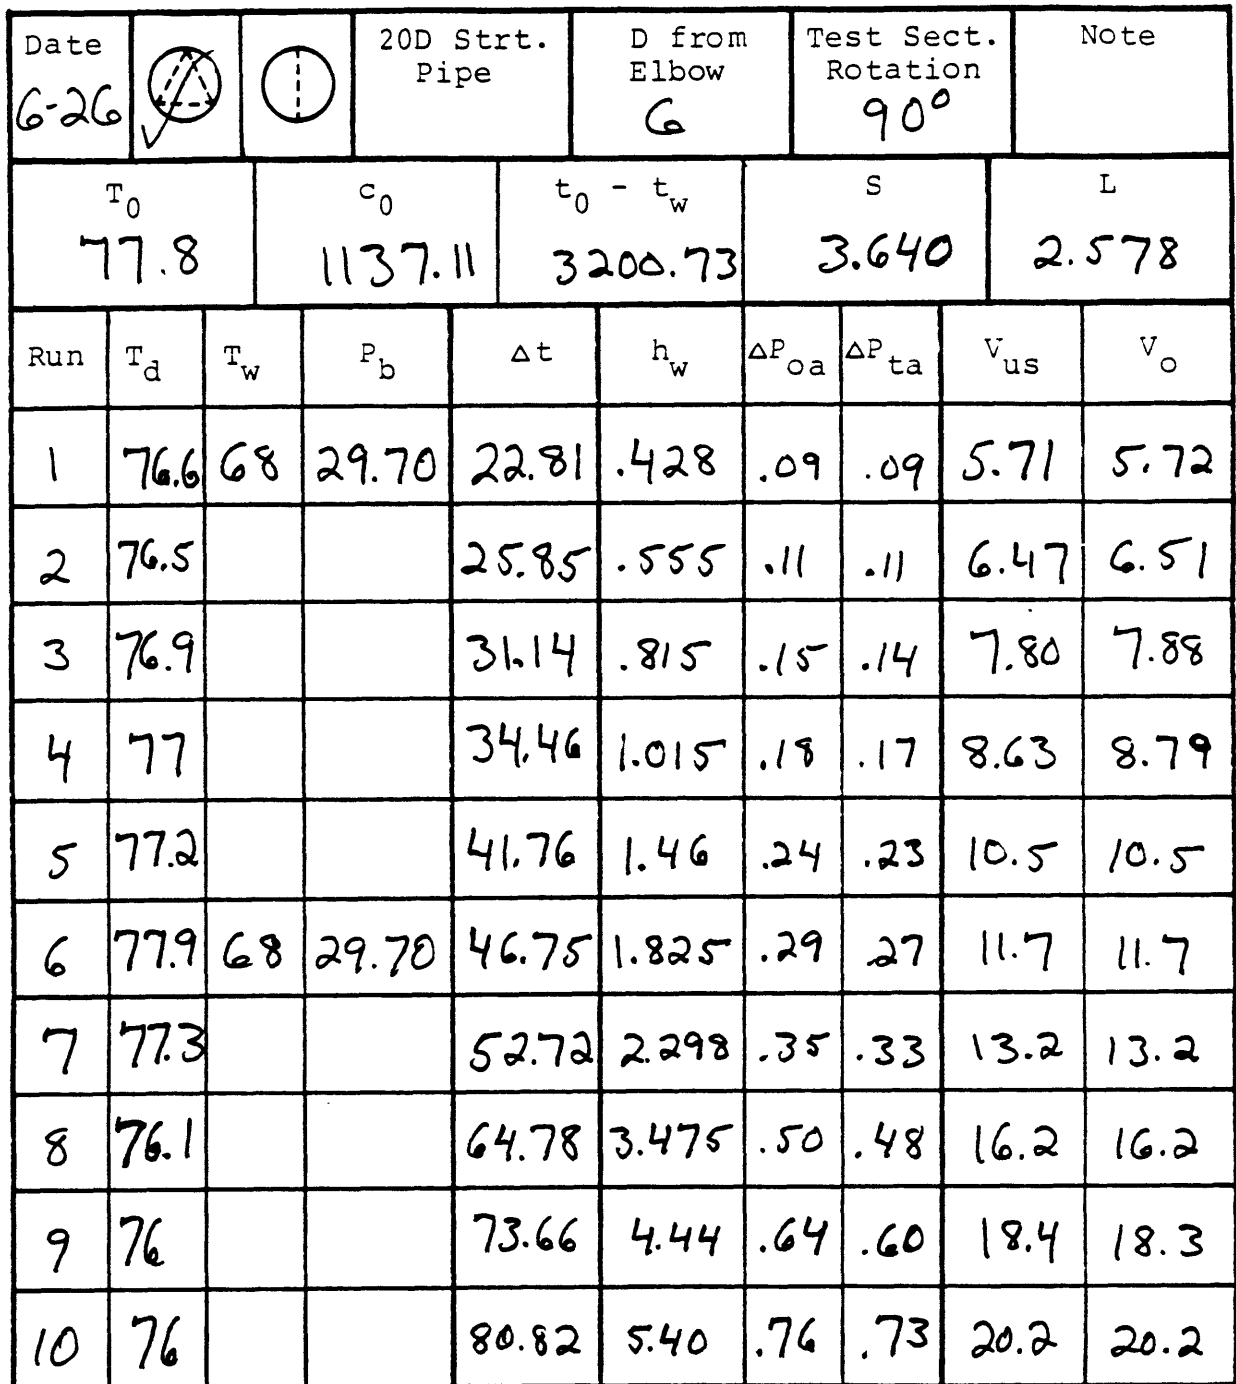 Date 20D Strt. D from Test Sect. Note
Pipe Elbow Rotation
6-26 ✓ 6 90°
T0 c0 t0 - tw S L
77.8 1137.11 3200.73 3.640 2.578
Run Td Tw Pb Δt hw ΔPoa ΔPta Vus Vo
1 76.6 68 29.70 22.81 .428 .09 .09 5.71 5.72
2 76.5 25.85 .555 .11 .11 6.47 6.51
3 76.9 31.14 .815 .15 .14 7.80 7.88
4 77 34.46 1.015 .18 .17 8.63 8.79
5 77.2 41.76 1.46 .24 .23 10.5 10.5
6 77.9 68 29.70 46.75 1.825 .29 .27 11.7 11.7
7 77.3 52.72 2.298 .35 .33 13.2 13.2
8 76.1 64.78 3.475 .50 .48 16.2 16.2
9 76 73.66 4.44 .64 .60 18.4 18.3
10 76 80.82 5.40 .76 .73 20.2 20.2